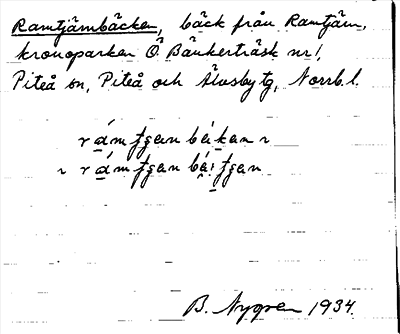 Ramtjärnbäcken, bäck från Ramtjärn,
kronoparken Ö. Bänkerträsk nr 1,
Piteå sn, Piteå och Älvsby tg, Norrb. l.
B. Nygren 1934.